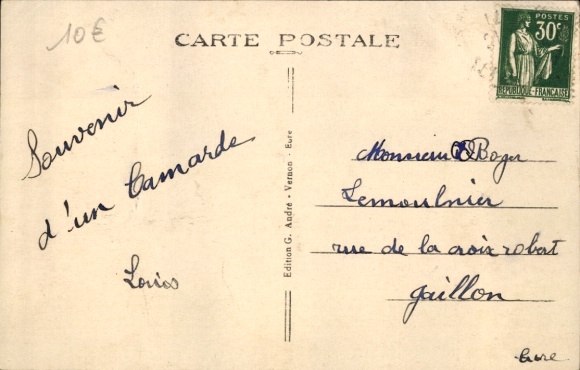 10€
CARTE POSTALE
POSTES
30c
REPUBLIQUE-FRANÇAISE
Souvenir
d'un Camarde
Louis
Edition G. André - Vernon - Eure
Monsieur Roger
Lemoulnier
rue de la croix robert
Gaillon
Eure